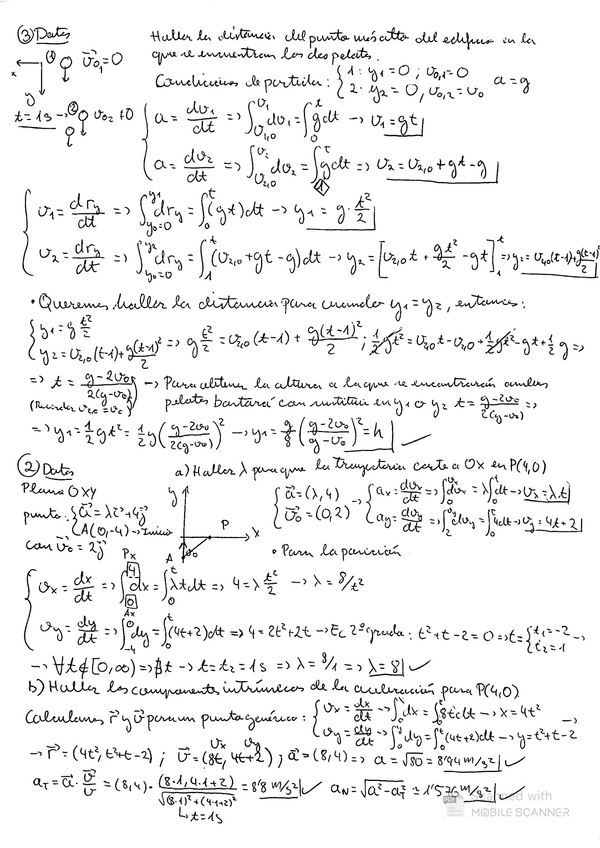 ③ Datos Hallar la distancia del punto más alto del edificio en la
que se encuentran las dos pelotas.
① v⃗₀₁ = 0
x y
Condiciones de partida: { 1: y₁ = 0 ; v₀,₁ = 0
2: y₂ = 0, v₀,₂ = v₀ a = g
t = 1s → ② v₀₂ ≠ 0
{ a = dv₁/dt => ∫_{v₁,₀}^{v₁} dv₁ = ∫₀^t g dt → v₁ = gt
a = dv₂/dt => ∫_{v₂,₀}^{v₂} dv₂ = ∫₁^t g dt => v₂ = v₂,₀ + gt - g
{ v₁ = dry/dt => ∫_{y₀=0}^{y₁} dry = ∫₀^t (gt) dt → y₁ = g · t²/2
v₂ = dry/dt => ∫_{y₀=0}^{y₂} dry = ∫₁^t (v₂,₀ + gt - g) dt → y₂ = [v₂,₀ t + gt²/2 - gt]₁^t => y₂ = v₂,₀(t-1) + g(t-1)²/2
• Queremos hallar la distancia para cuando y₁ = y₂, entonces:
{ y₁ = g t²/2
y₂ = v₂,₀(t-1) + g(t-1)²/2 => g t²/2 = v₂,₀(t-1) + g(t-1)²/2 ; 1/2 gt² = v₂,₀t - v₂,₀ + 1/2 gt² - gt + 1/2 g =>
=> t = g-2v₀/2(g-v₀) → Para obtener la altura a la que se encontrarán ambas
(Recordar v₂,₀ = v₀) pelotas bastará con sustituir en y₁ o y₂ t = g-2v₀/2(g-v₀) =>
=> y₁ = 1/2 gt² = 1/2 g (g-2v₀/2(g-v₀))² → y₁ = g/8 (g-2v₀/g-v₀)² = h ✓
② Datos a) Hallar λ para que la trayectoria corte a Ox en P(4,0)
Plano OXY
punto: { a⃗ = λi⃗ + 4j⃗
A(0,-4) → Inicio
con v⃗₀ = 2j⃗
y P x A v₀
{ a⃗ = (λ, 4)
v⃗₀ = (0, 2) → { ax = dvx/dt => ∫₀ dvx = λ∫₀^t dt → vx = λt
ay = dvy/dt => ∫₂ dvy = ∫₀^t 4dt → vy = 4t + 2
• Para la posición
{ vx = dx/dt => ∫₀^4 dx = ∫₀^t λt dt => 4 = λ t²/2 → λ = 8/t²
Px Ax
vy = dy/dt => ∫₋₄^0 dy = ∫₀^t (4t+2) dt => 4 = 2t² + 2t → Ec 2º grado: t² + t - 2 = 0 => t = { t₁ = -2 →
t₂ = 1
→ ∀t ∉ [0, ∞) => ∄t → t = t₂ = 1s => λ = 8/1 => λ = 8 ✓
b) Hallar las componentes intrínsecas de la aceleración para P(4,0)
Calculamos r⃗ y v⃗ para un punto genérico: { vx = dx/dt → ∫₀^x dx = ∫₀^t 8t dt → x = 4t²
vy = dy/dt → ∫₀^y dy = ∫₀^t (4t+2) dt → y = t² + t - 2 →
→ r⃗ = (4t², t² + t - 2) ; v⃗ = (8t, 4t + 2) ; a⃗ = (8, 4) => a = √80 = 8'94 m/s² ✓
vx vy
aT = a⃗ · v⃗/v = (8, 4) · (8·1, 4·1+2)/√(8·1)² + (4·1+2)² = 8'8 m/s² ✓ aN = √a² - aT² = 1'576 m/s² ✓
↳ t = 1s
Scanned with
MOBILE SCANNER